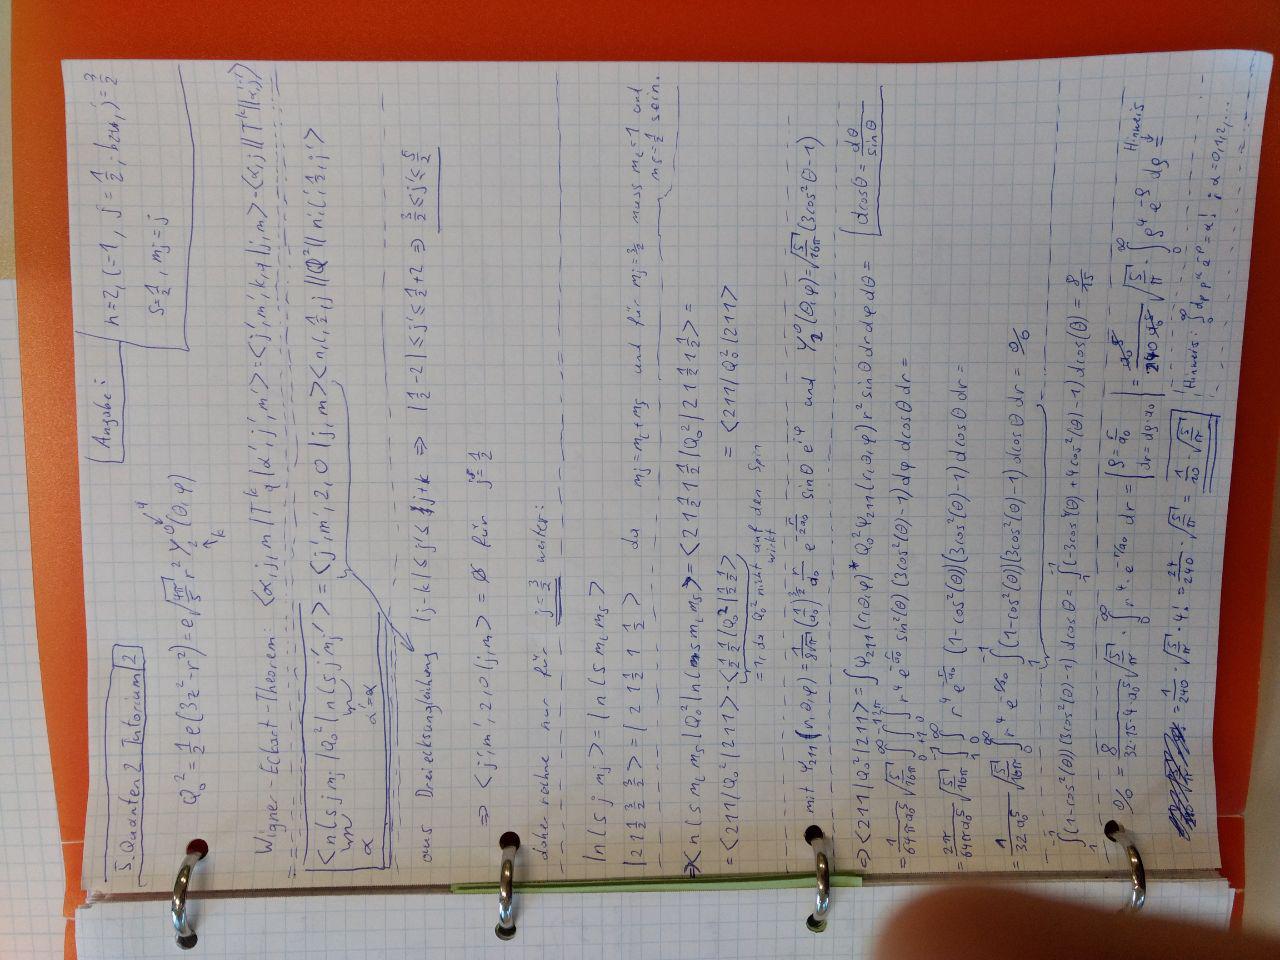 5. Quanten 2 Tutorium 2
Angabe:
n=2, l=1, j=1/2; bzw. j=3/2
s=1/2, mj=j
Q₀² = 1/2 e(3z²-r²) = e√(4π/5) r² Y₂⁰(θ,φ)
Wigner-Eckart-Theorem: <α,j,m|T^k_q|α',j',m'> = <j',m',k,q|j,m>·<α,j||T^k||α',j'>
<n l s j mj|Q₀²|n l s j' mj'> = <j',m',2,0|j,m><n,l,1/2,j||Q²||n',l',1/2,j'>
α α'=α
aus Dreiecksungleichung |j-k| ≤ j' ≤ j+k ⇒ |1/2-2| ≤ j' ≤ 1/2+2 ⇒ 3/2 ≤ j' ≤ 5/2
⇒ <j',m',2,0|j,m> = 0 für j=1/2
daher rechne nur für j=3/2 weiter:
|n l s j mj> = |n l s ml ms>
|2 1 1/2 3/2 3/2> = |2 1 1/2 1 1/2> da mj=ml+ms und für mj=3/2 muss ml=1 und
ms=1/2 sein.
⇒ <n l s ml ms|Q₀²|n l s ml ms> = <2 1 1/2 1 1/2|Q₀²|2 1 1/2 1 1/2> =
= <211|Q₀²|211>·<1/2 1/2|Q₀²|1/2 1/2> = <211|Q₀²|211>
=1, da Q₀² nicht auf den Spin
wirkt
mit Ψ₂₁₁(r,θ,φ) = 1/(8√π) (1/a₀)^(3/2) r/a₀ e^(-r/2a₀) sinθ e^(iφ) und Y₂⁰(θ,φ)=√(5/16π)(3cos²θ-1)
⇒ <211|Q₀²|211> = ∫Ψ₂₁₁(r,θ,φ)* Q₀² Ψ₂₁₁(r,θ,φ) r² sinθ dr dφ dθ = |dcosθ = dθ/sinθ|
= 1/(64πa₀⁵) √(5/16π) ∫∫∫ r⁴ e^(-r/a₀) sin²(θ)(3cos²(θ)-1) dφ dcosθ dr =
= 2π/(64πa₀⁵) √(5/16π) ∫∫ r⁴ e^(-r/a₀) (1-cos²(θ))(3cos²(θ)-1) dcosθ dr =
= 1/(32a₀⁵) √(5/16π) ∫ r⁴ e^(-r/a₀) ∫(1-cos²(θ))(3cos²(θ)-1) dcosθ dr = %
∫(1-cos²(θ))(3cos²(θ)-1) dcosθ = ∫(-3cos⁴(θ)+4cos²(θ)-1) dcos(θ) = 8/15
% = 8/(32·15·4 a₀⁵) √(5/π) · ∫ r⁴·e^(-r/a₀) dr = |ρ = r/a₀, dr = dρ·a₀| = a₀⁵/(240 a₀⁵) √(5/π) · ∫ ρ⁴ e^(-ρ) dρ = Hinweis
= 1/240 · √(5/π) · 4! = 24/240 · √(5/π) = 1/10 · √(5/π)
Hinweis: ∫dρ ρ^α e^(-ρ) = α! ; α=0,1,2,...